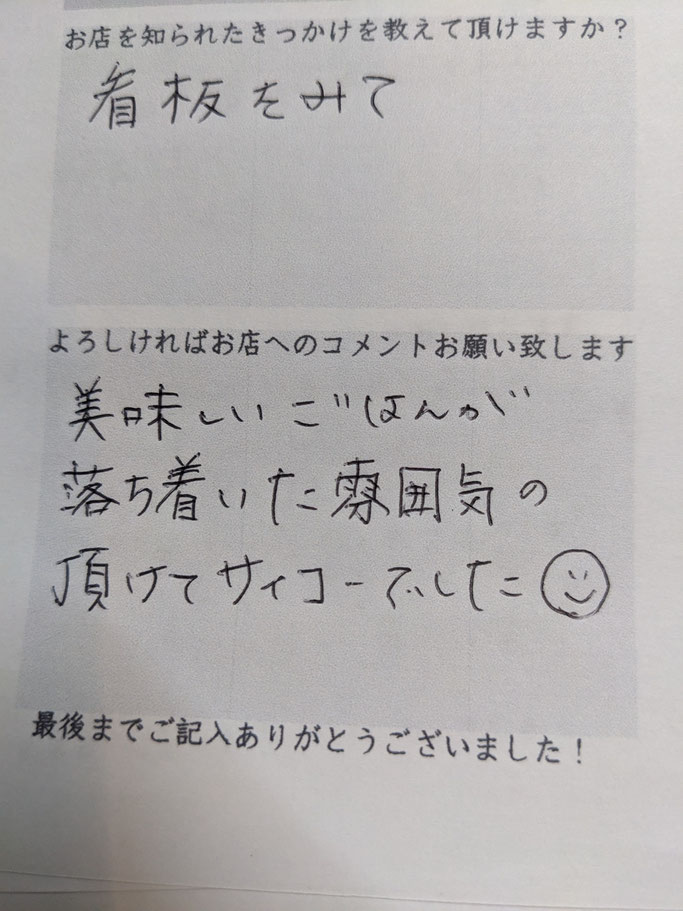 お店を知られたきっかけを教えて頂けますか？
看板をみて
よろしければお店へのコメントお願い致します
美味しいごはんが
落ち着いた雰囲気の
頂けてサイコーでした
最後までご記入ありがとうございました！